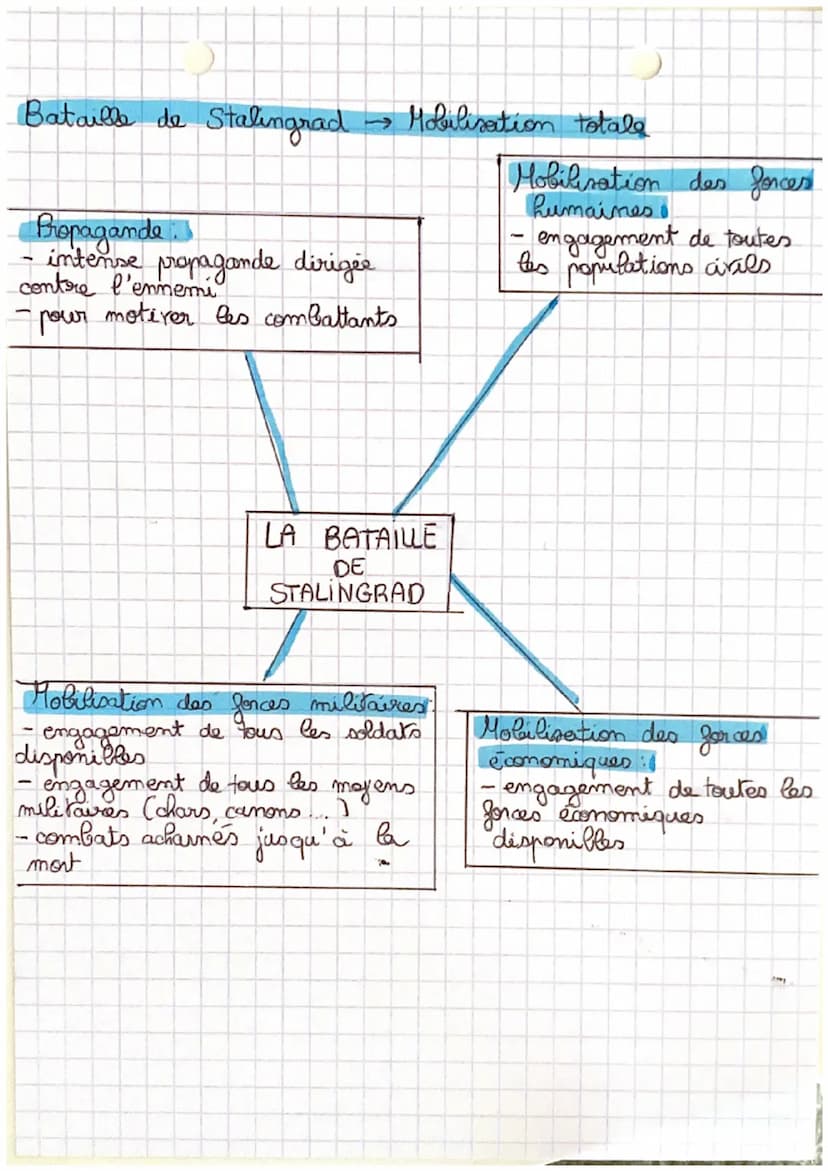 Bataille de Stalingrad → Mobilisation totale
Propagande :
- intense propagande dirigée
contre l'ennemi
- pour motiver les combattants
Mobilisation des forces
humaines :
- engagement de toutes
les populations civils
LA BATAILLE
DE
STALINGRAD
Mobilisation des forces militaires :
- engagement de tous les soldats
disponibles
- engagement de tous les moyens
militaires (chars, canons ... )
- combats acharnés jusqu'à la
mort
Mobilisation des forces
économiques :
- engagement de toutes les
forces économiques
disponibles